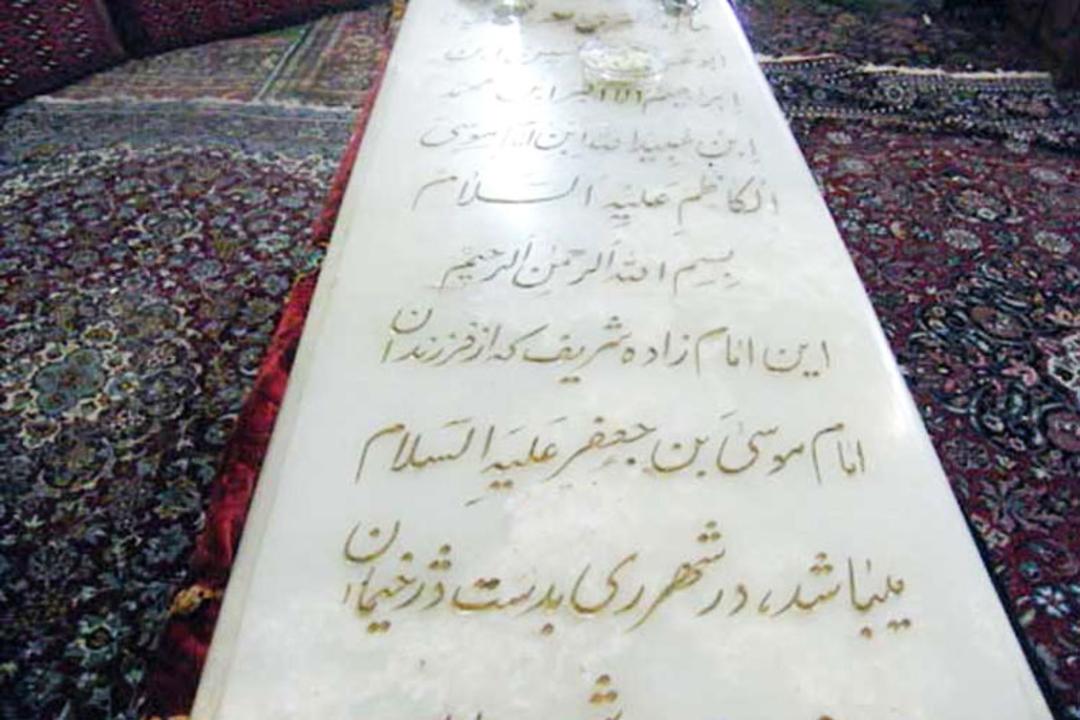 ابراهیم الاکبر ابن محمد
اِبنِ عُبیدا للهِ اِبنِ اَمامِ موسَی
الکاظِمِ عَلَیهِ السَّلام
بِسِمِ اللهِ الَرحمنِ اَلرحیِمِ
این امام زاده شریف که از فرزندان
امام موسیَ بن جعِفِرِ عَلَیَهِ السَلام
میباشد، در شهر ری بدست دژخیمان